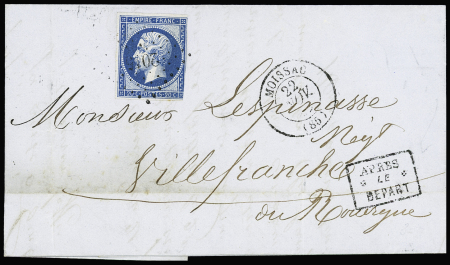 EMPIRE FRANC.
20c POSTES 20c
MOISSAC
22
(85)
Monsieur Lespinasse
Négt
Villefranche
du Rouergue
APRES
LE
DEPART